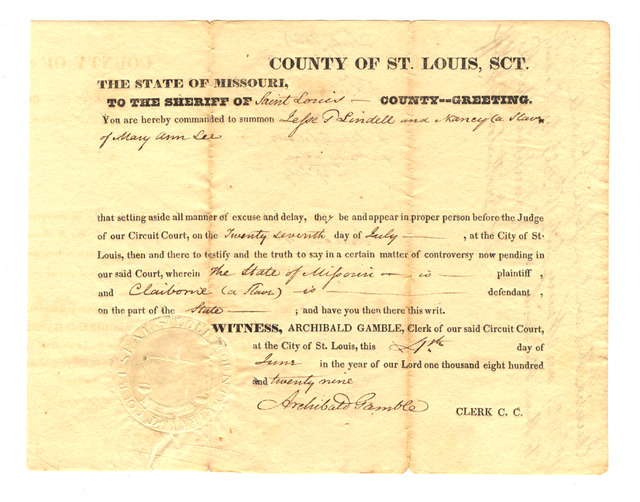 COUNTY OF ST. LOUIS, SCT.
THE STATE OF MISSOURI,
TO THE SHERIFF OF Saint Louis — COUNTY--GREETING.
You are hereby commanded to summon Jesse T Lindell and Nancy (a Slave
of Mary Ann Lee
that setting aside all manner of excuse and delay, they be and appear in proper person before the Judge
of our Circuit Court, on the Twenty seventh day of July — , at the City of St-
Louis, then and there to testify and the truth to say in a certain matter of controversy now pending in
our said Court, wherein The State of Missouri — is — plaintiff ,
and Claiborne (a Slave) is — defendant ,
on the part of the State — ; and have you then there this writ.
WITNESS, ARCHIBALD GAMBLE, Clerk of our said Circuit Court,
at the City of St. Louis, this day of
June in the year of our Lord one thousand eight hundred
and twenty nine
Archibald Gamble CLERK C. C.